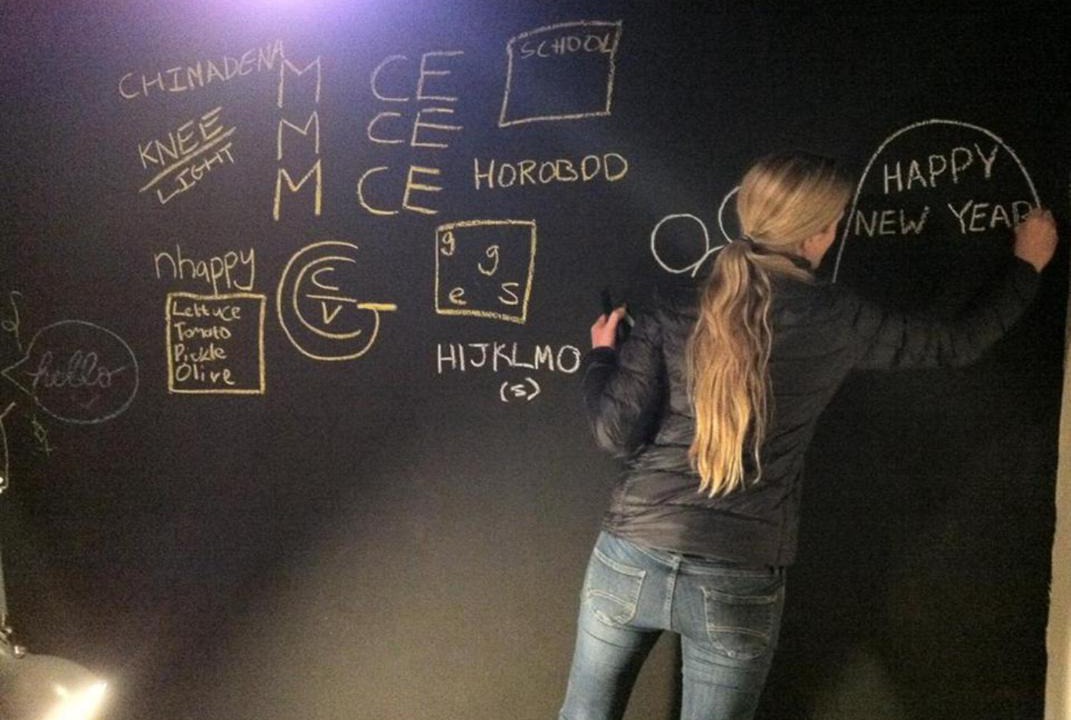 CHIMADENA
KNEE
LIGHT
M CE
M CE
M CE
SCHOOL
HOROBOD
nhappy
Lettuce
Tomato
Pickle
Olive
C
V
g
g
e s
HIJKLMO
(s)
hello
HAPPY
NEW YEAR